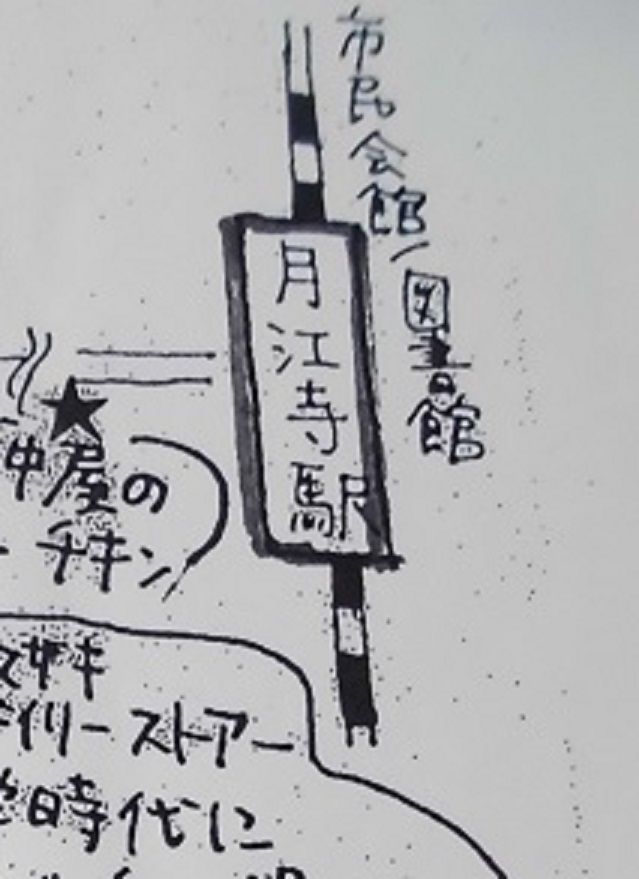 市民会館/図書館
月江寺駅
中屋の
ーチキン
ザキ
イリーストアー
時代に